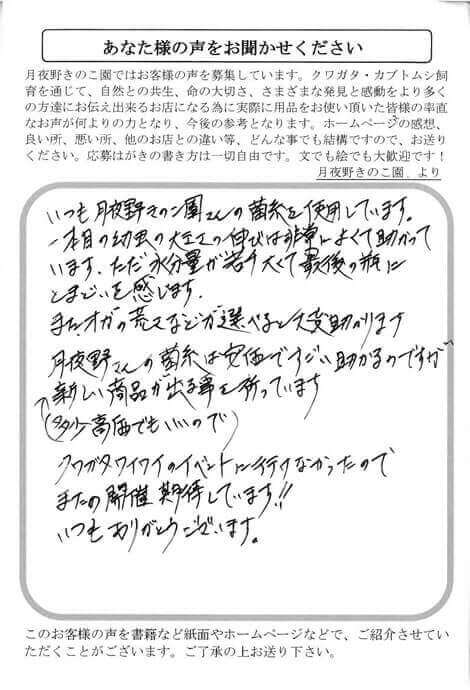 あなた様の声をお聞かせください
月夜野きのこ園ではお客様の声を募集しています。クワガタ・カブトムシ飼
育を通じて、自然との共生、命の大切さ、さまざまな発見と感動をより多く
の方達にお伝え出来るお店になる為に実際に用品をお使い頂いた皆様の率直
なお声が何よりの力となり、今後の参考となります。ホームページの感想、
良い所、悪い所、他のお店との違い等、どんな事でも結構ですので、お送り
ください。応募はがきの書き方は一切自由です。文でも絵でも大歓迎です！
月夜野きのこ園 より
いつも月夜野きのこ園さんの菌糸を使用しています。
一本目の幼虫の大きさの伸びは非常によくて助かって
います。ただ水分量が若干大くて最後の瓶に
とまどいを感じます。
また、オガの荒さなどが選べると大変助かります
月夜野さんの菌糸は安価ですごい助かるのですが
新しい商品が出る事を祈っています
(多少高価でもいいので)
クワガタワイワイのイベントに行けなかったので
またの開催期待しています!!
いつもありがとうございます。
このお客様の声を書籍など紙面やホームページなどで、ご紹介させてい
ただくことがございます。ご了承の上お送り下さい。